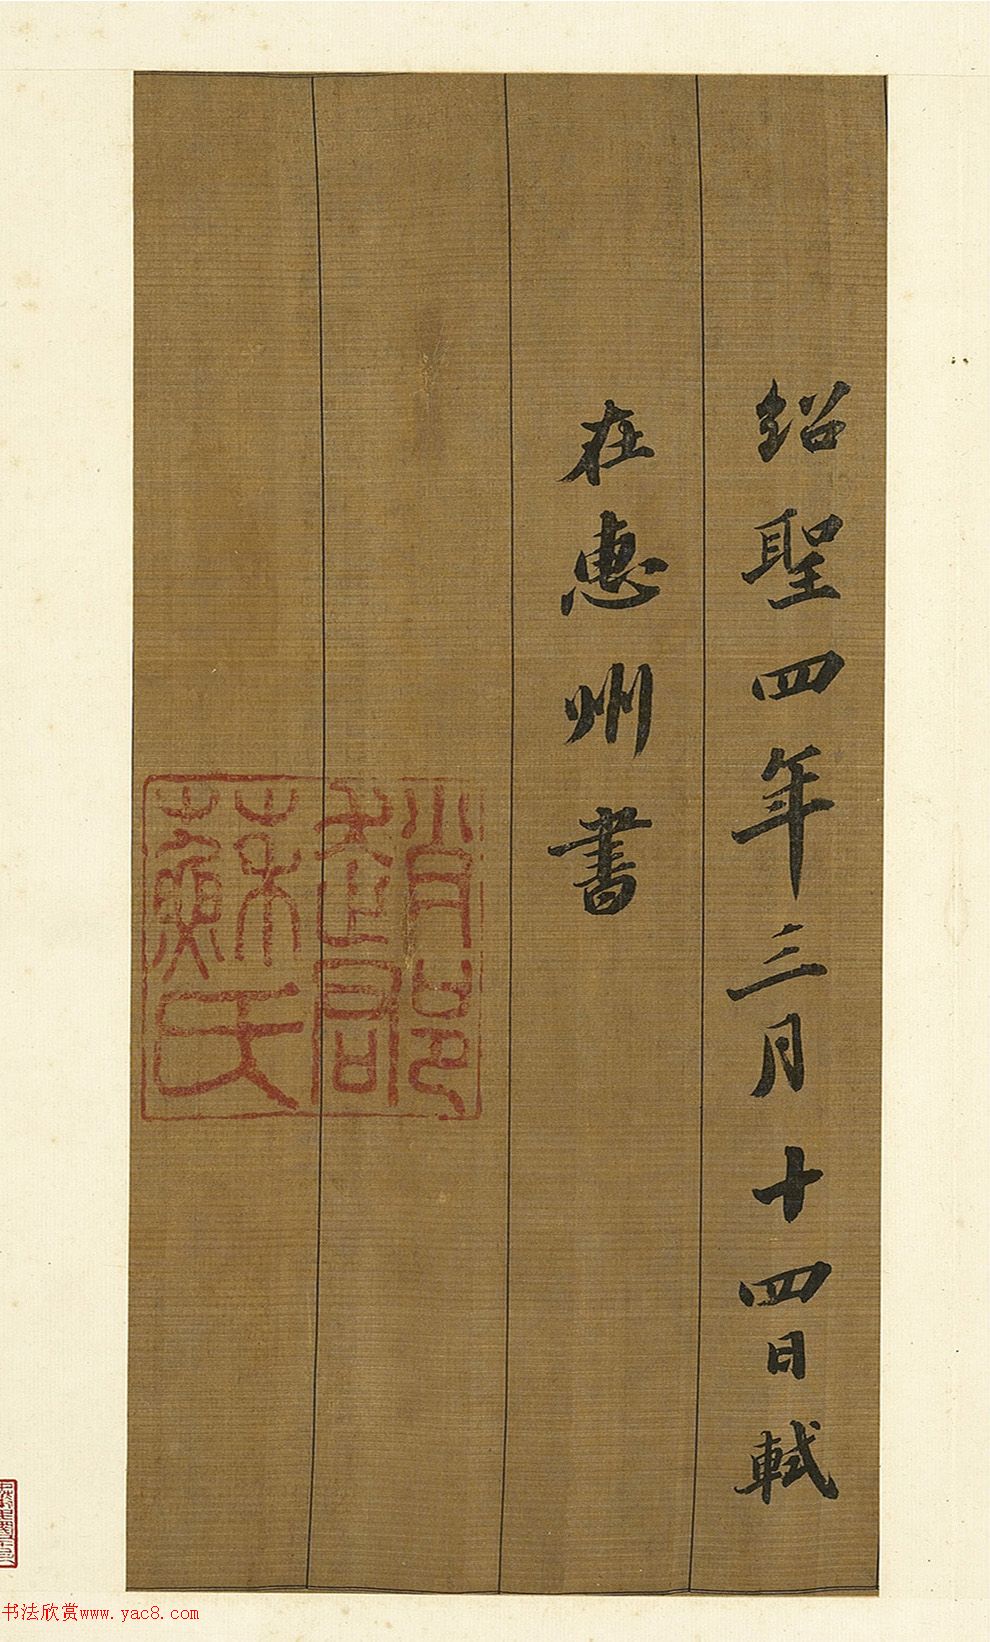 紹聖四年三月十四日軾
在惠州書
趙郡
蘇氏
书法欣赏www.yac8.com